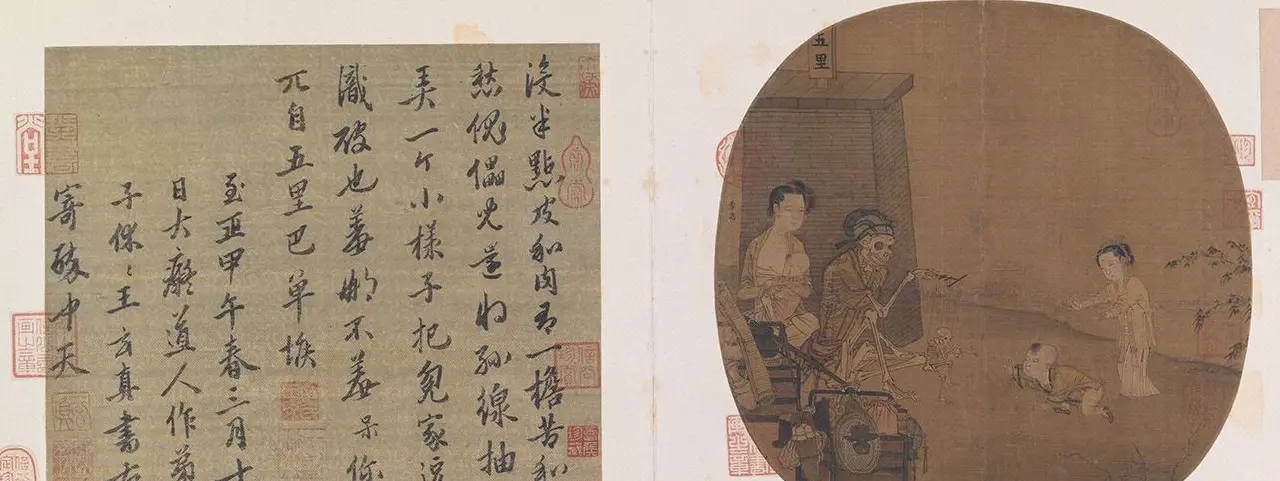 沒半點皮和肉有一擔苦和
愁傀儡兒還將絲線抽
弄一个小樣子把冤家逗
識破也羞那不羞呆你
兀自五里巴單堠
至正甲午春三月十
日大癡道人作弟
子休〻王玄真書右
寄醉中天
五里
李嵩